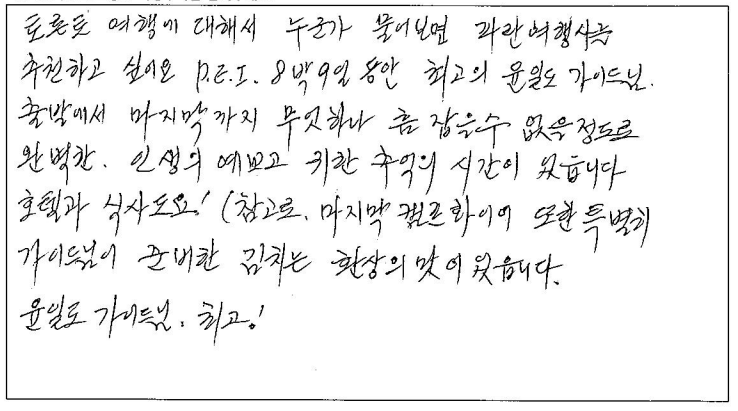 토론토 여행에 대해서 누군가 물어보면 파란여행사를
추천하고 싶어요 P.E.I. 8박9일 동안 최고의 윤일도 가이드님.
출발에서 마지막까지 무엇하나 흠 잡을수 없을정도로
완벽한. 인생의 예쁘고 귀한 추억의 시간이 었습니다
호텔과 식사도요! (참고로, 마지막 캠프화이어 또한 특별히
가이드님이 준비한 김치는 환상의 맛이 었읍니다.
윤일도 가이드님. 최고!